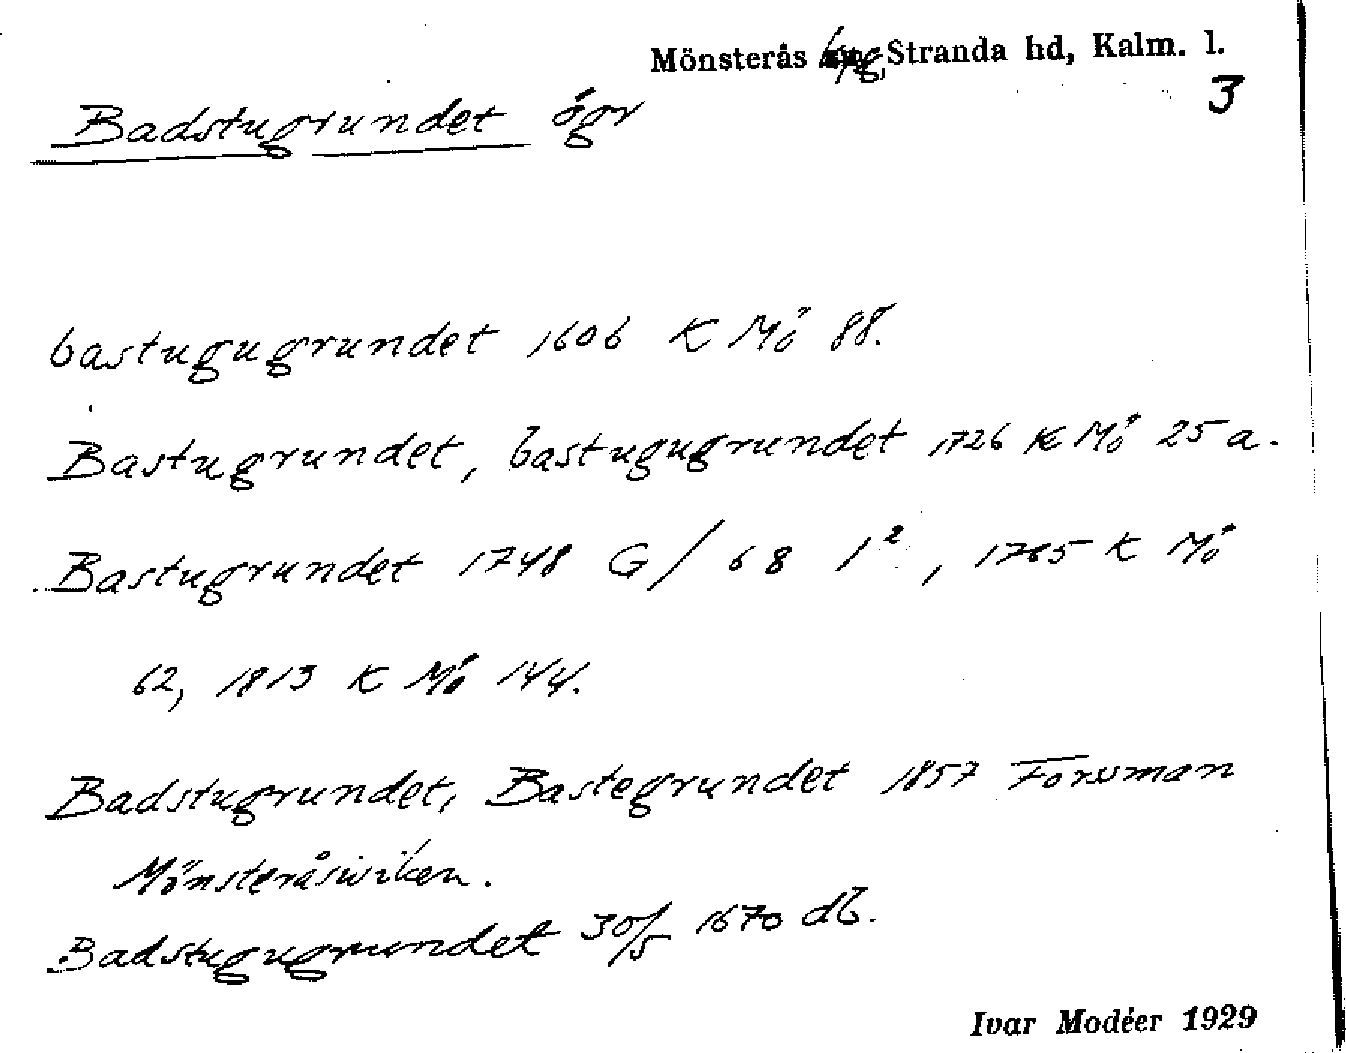 Mönsterås bg, Stranda hd, Kalm. l.
3
Badstugrundet ögr
bastugugrundet 1606 K Mö 88.
Bastugrundet, bastugugrundet 1726 K Mö 25 a.
Bastugrundet 1748 G/68 1², 1765 K Mö
62, 1813 K Mö 144.
Badstugrundet, Bastegrundet 1857 Forssman
Mönsteråswiken.
Badstugugrundet 30/5 1670 db.
Ivar Modéer 1929